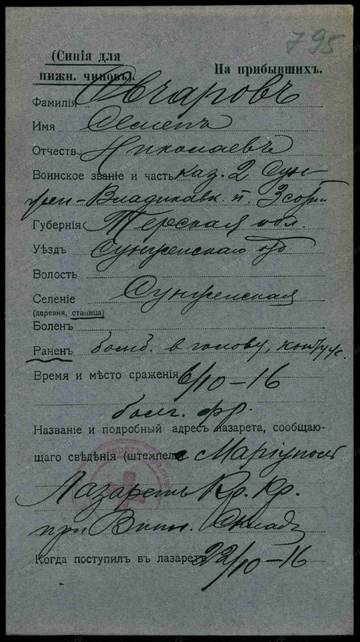 795
(Синія для
нижн. чиновъ).
На прибывшихъ.
Фамилія Овчаровъ
Имя Семенъ
Отчеств Николаевъ
Воинское званіе и часть каз. 2 Сун-
жен-Владикавк. п. 3 сотни
Губернія Терская обл.
Уѣздъ Сунженскаго
Волость
Селеніе Сунженская
(деревня, станица)
Боленъ
Раненъ в голову,
Время и мѣсто сраженія 6/10-16
фр.
Названіе и подробный адресъ лазарета, сообщаю-
щаго свѣдѣнія (штемпель Маріуполь
Лазаретъ Кр. Кр.
при Винн. Складѣ
Когда поступилъ въ лазаретъ 22/10-16